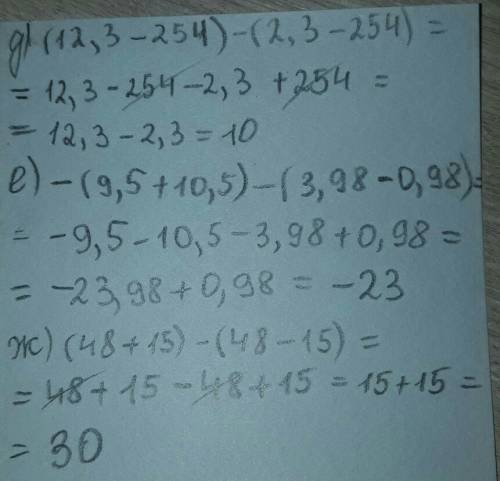 д) (12,3-254)-(2,3-254)=
= 12,3-254-2,3 +254 =
= 12,3-2,3=10
е) -(9,5+10,5)-(3,98-0,98)=
= -9,5-10,5-3,98+0,98=
= -23,98+0,98 = -23
ж) (48+15)-(48-15)=
= 48+15-48+15=15+15=
= 30